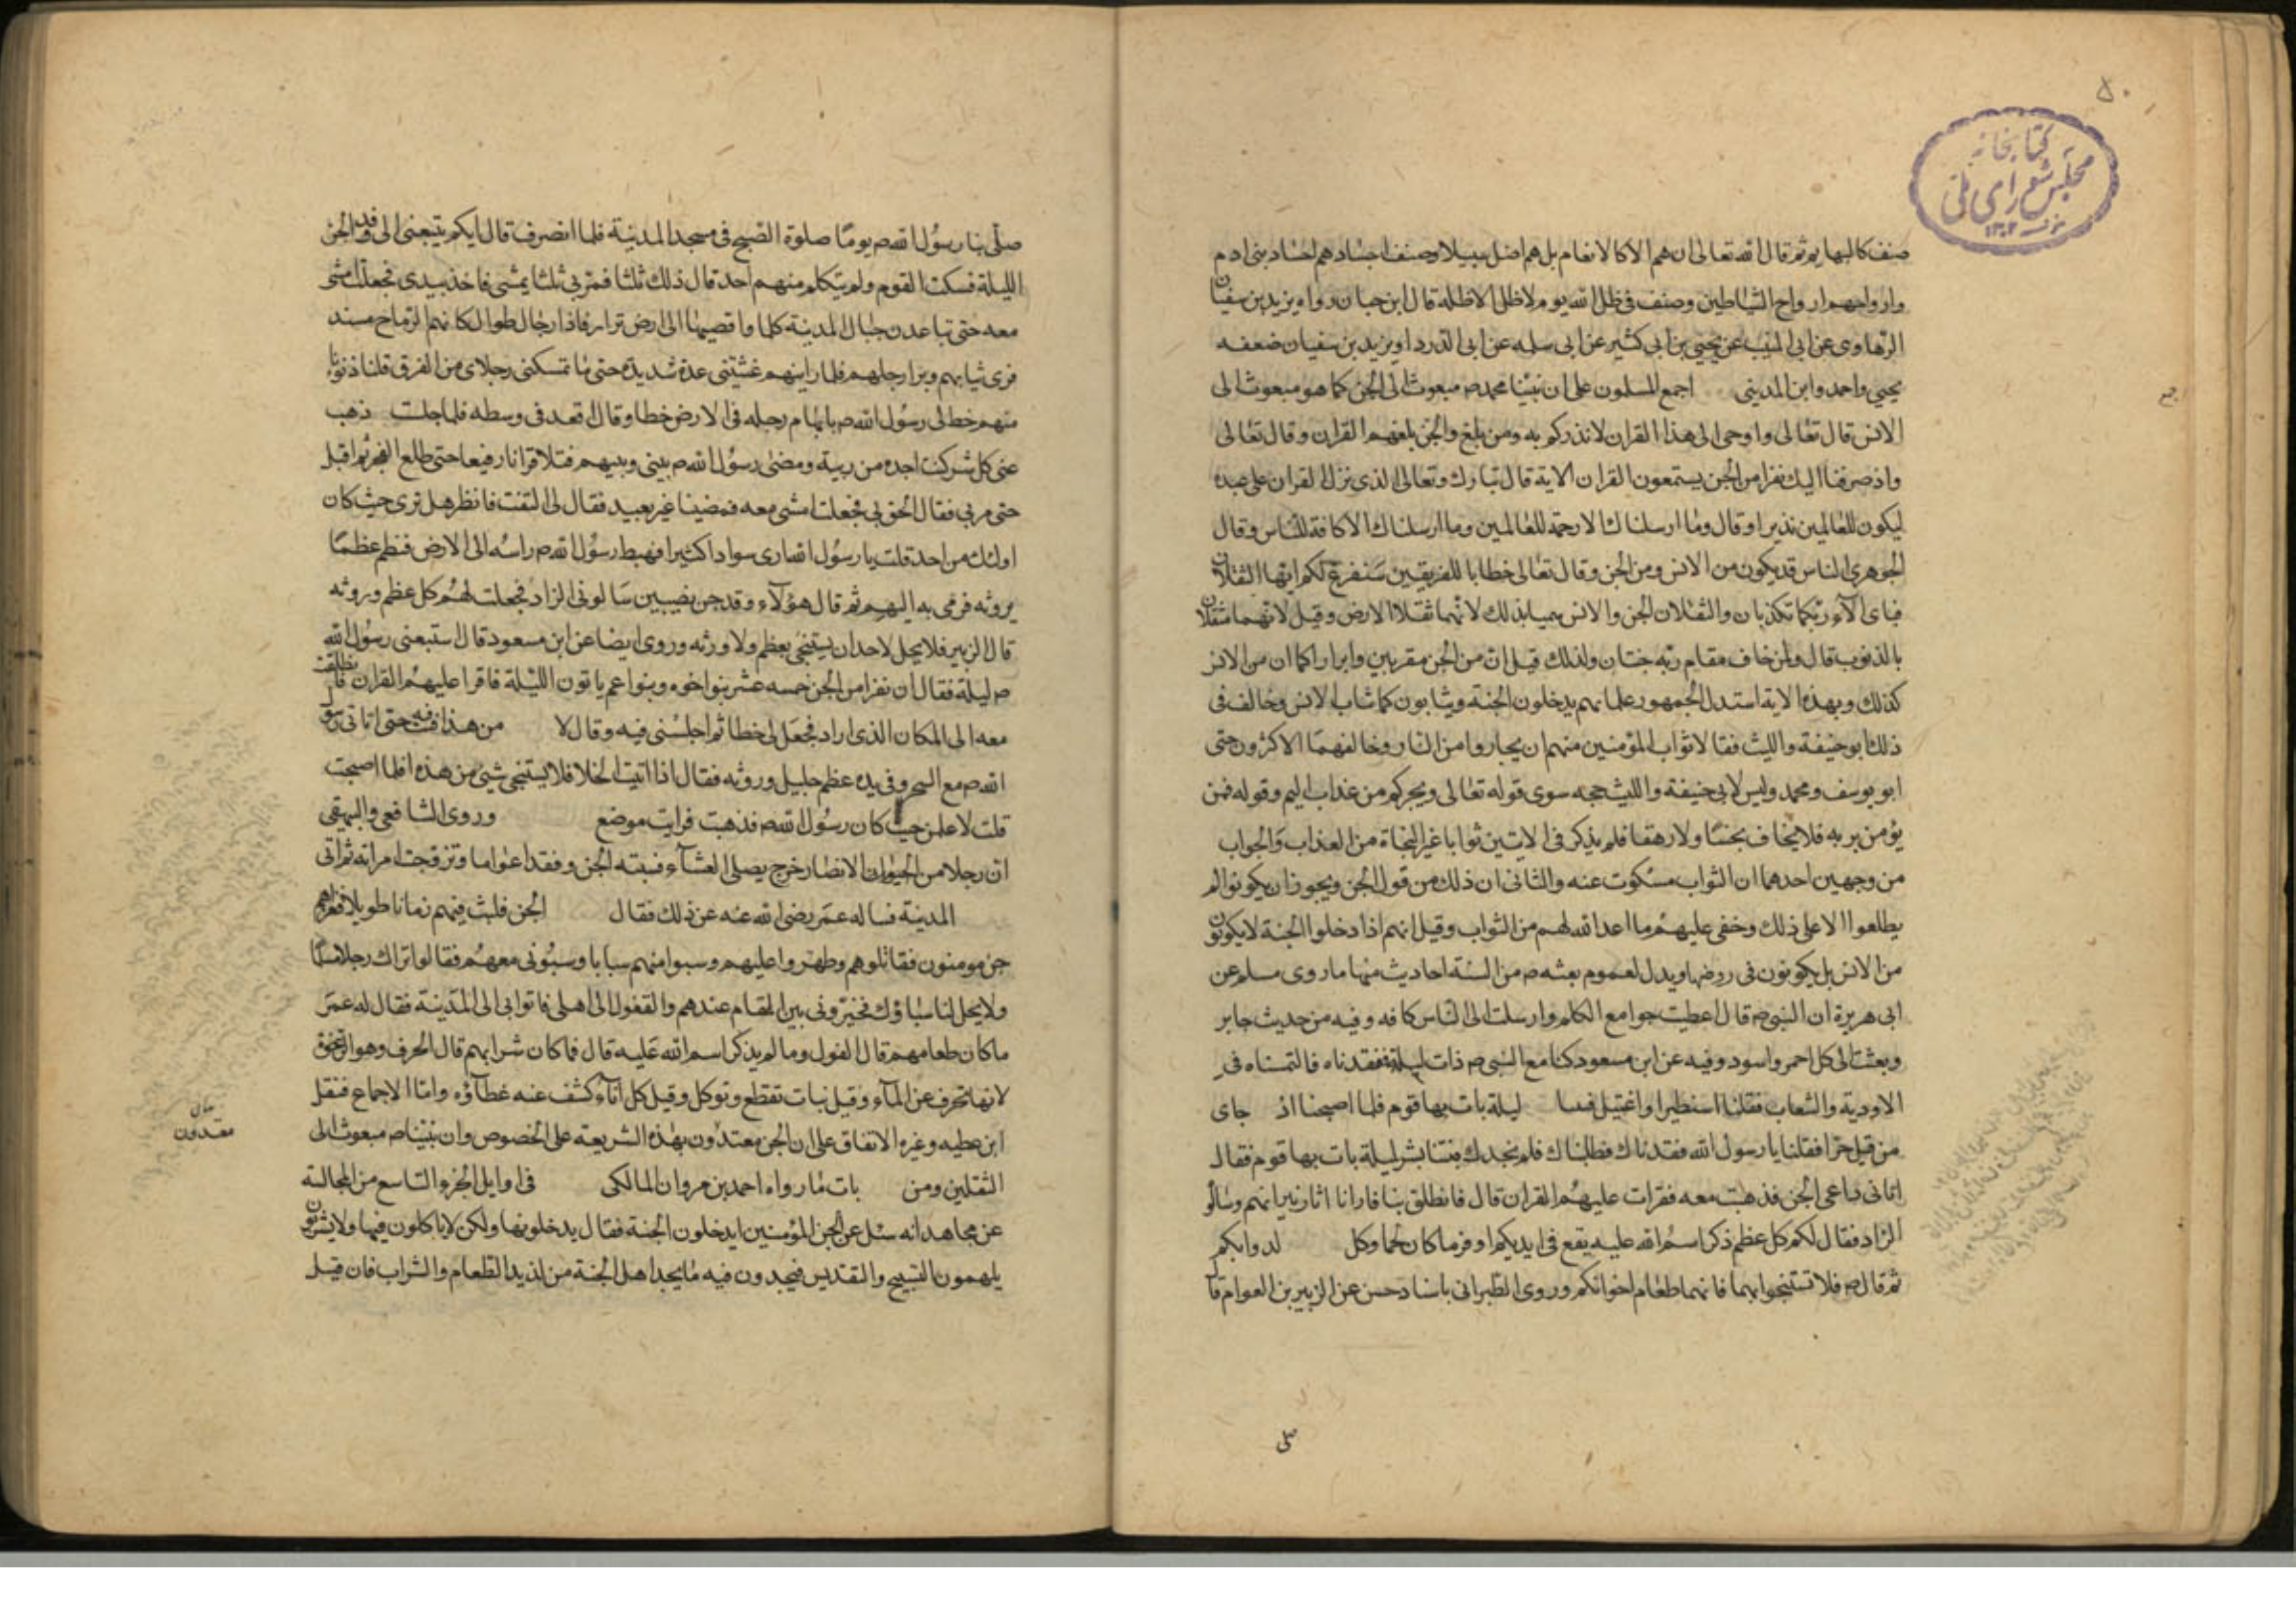 ۵۰
کتابخانه
مجلس شورای ملی
۱۳۰۲
صنف كالبهايم ثم قال الله تعالى ان هم الا كالانعام بل هم اضل سبيلا وصنف اجسادهم اجساد بنى ادم
وارواحهم ارواح الشياطين وصنف فى ظل الله يوم لا ظل الا ظله قال ابن حبان رواه يزيد بن سفيان
الرهاوى عن ابى المنيب عن يحيى بن ابى كثير عن ابى سلمه عن ابى الدرداء ويزيد بن سفيان ضعفه
يحيى واحمد وابن المدينى اجمع المسلمون على ان نبينا محمد ص مبعوث الى الجن كما هو مبعوث الى
الانس قال تعالى واوحى الى هذا القران لانذركم به ومن بلغ والجن بلغهم القران وقال تعالى
واذ صرفنا اليك نفرا من الجن يستمعون القران الاية قال تبارك وتعالى الذى نزل القران على عبده
ليكون للعالمين نذيرا وقال وما ارسلناك الا رحمة للعالمين وما ارسلناك الا كافة للناس وقال
الجوهرى الناس قد يكون من الانس ومن الجن وقال تعالى خطابا للفريقين سنفرغ لكم ايها الثقلان
فباى الآء ربكما تكذبان والثقلان الجن والانس سميا بذلك لانهما ثقلا الارض وقيل لانهما مثقلان
بالذنوب قال ولمن خاف مقام ربه جنتان ولذلك قيل ان من الجن مقربين وابرارا كما ان من الانس
كذلك وبهذه الاية استدل الجمهور على انهم يدخلون الجنة ويثابون كما ثاب الانس وخالف فى
ذلك ابو حنيفة والليث فقالا ثواب المؤمنين منهم ان يجاروا من النار وخالفهما الاكثرون حتى
ابو يوسف ومحمد وليس لابى حنيفة والليث حجه سوى قوله تعالى ويجركم من عذاب اليم وقوله فمن
يؤمن بربه فلا يخاف بخسا ولا رهقا فلم يذكر فى الايتين ثوابا غير النجاة من العذاب والجواب
من وجهين احدهما ان الثواب مسكوت عنه والثانى ان ذلك من قول الجن ويجوز ان يكونوا لم
يطلعوا الا على ذلك وخفى عليهم ما اعد الله لهم من الثواب وقيل انهم اذا دخلوا الجنة لا يكونون
من الانس بل يكونون فى روضها ويدل لعموم بعثه ص من السنة احاديث منها ما روى مسلم عن
ابى هريرة ان النبى ص قال اعطيت جوامع الكلم وارسلت الى الناس كافه وفيه من حديث جابر
وبعثت الى كل احمر واسود وفيه عن ابن مسعود كنا مع النبى ص ذات ليلة ففقدناه فالتمسناه فى
الاودية والشعاب فقلنا استطير او اغتيل فبتنا ليلة بات بها قوم فلما اصبحنا اذ جاى
من قبل حرا فقلنا يا رسول الله فقدناك فطلبناك فلم نجدك فبتنا بشر ليلة بات بها قوم فقال
اتانى داعى الجن فذهبت معه فقرات عليهم القران قال فانطلق بنا فارانا اثار نيرانهم وسالو
الزاد فقال لكم كل عظم ذكر اسم الله عليه يقع فى ايديكم اوفر ما كان لحما وكل لدوابكم
ثم قال ص فلا تستنجوا بهما فانهما طعام اخوانكم وروى الطبرانى باسناد حسن عن الزبير بن العوام قا
صلى
صلى بنا رسول الله ص يوما صلوة الصبح فى مسجد المدينة فلما انصرف قال ايكم يتبعنى الى وفد الجن
الليلة فسكت القوم ولم يتكلم منهم احد قال ذلك ثلثا فمر بى ثلثا يمشى فاخذ بيدى فجعلت امشى
معه حتى تباعدن جبال المدينة كلها وافضينا الى ارض تراز فاذا رجال طوال كانهم الرماح مستد
فرى ثيابهم وبزا رجلهم فلما رايتهم غشيتنى عدة شديدة حتى ما تمسكنى رجلاى من الفرق فلنا دنونا
منهم خط لى رسول الله ص بابهام رجله فى الارض خطا وقال اقعد فى وسطه فلما جلت ذهب
عنى كل شى كنت اجده من ريبة ومضى رسول الله ص بينى وبينهم فتلا قرانا رفيعا حتى طلع الفجر ثم اقبل
حتى مر بى فقال الحق بى فجعلت امشى معه فمضينا غير بعيد فقال لى التفت فانظر هل ترى حيث كان
اولئك من احد قلت يا رسول الله ارى سوادا كثيرا فهبط رسول الله ص راسه الى الارض فنظم عظما
بروثه فرمى به اليهم ثم قال هؤلآء وفد جن نصيبين سالونى الزاد فجعلت لهم كل عظم وروثه
قال الزبير فلا يحل لاحد ان يستنجى بعظم ولا ورثه وروى ايضا عن ابن مسعود قال استتبعنى رسول الله
ص ليلة فقال ان نفرا من الجن خمسه عشر بنو اخوه وبنو اعم ياتون الليلة فاقرا عليهم القران فانطلقت
معه الى المكان الذى اراد فجعل لى خطا ثم اجلسنى فيه وقال لا من هذا فبت فيه حتى اتانى رسول
الله ص مع السحر وفى يده عظم حليل وروثه فقال اذا اتيت الخلا فلا يستنجى بشى من هذه افلما اصبحت
قلت لاعلمن حيث كان رسول الله ص فذهبت فرايت موضع وروى الشافعى والبيهقى
ان رجلا من الانصار خرج يصلى العشآء فسبته الجن وفقد اعواما وتزوجت امراته ثم اتى
المدينة فساله عمر رضى الله عنه عن ذلك فقال الجن فلبث فيهم زمانا طويلا فغزاهم
جن مومنون فقاتلوهم وظهروا عليهم وسبوا منهم سبايا وسبونى معهم فقالوا نراك رجلا مسلما
ولا يحل لنا سباؤك فخيرونى بين المقام عندهم والقفول الى اهلى فاتوا بى الى المدينة فقال له عمر
ما كان طعامهم قال الفول وما لم يذكر اسم الله عليه قال فما كان شرابهم قال الجرف وهو الرغوة
لانها تجرف عن المآء وقيل نبات تقطع وتوكل وقيل كل انآء كشف عنه غطآؤه واما الاجماع فنقل
ابن عطيه وغيره الاتفاق على ان الجن معتدون بهذه الشريعة على الخصوص وان نبينا ص مبعوث الى
الثقلين ومن بات ما رواه احمد بن مروان المالكى فى اوايل الجزء التاسع من المجالسة
عن مجاهد انه سئل عن الجن المؤمنين ايدخلون الجنة فقال يدخلونها ولكن لا ياكلون فيها ولا يشربون
يلهمون التسبيح والتقديس فيجدون فيه ما يجد اهل الجنة من لذيذ الطعام والشراب فان قيل